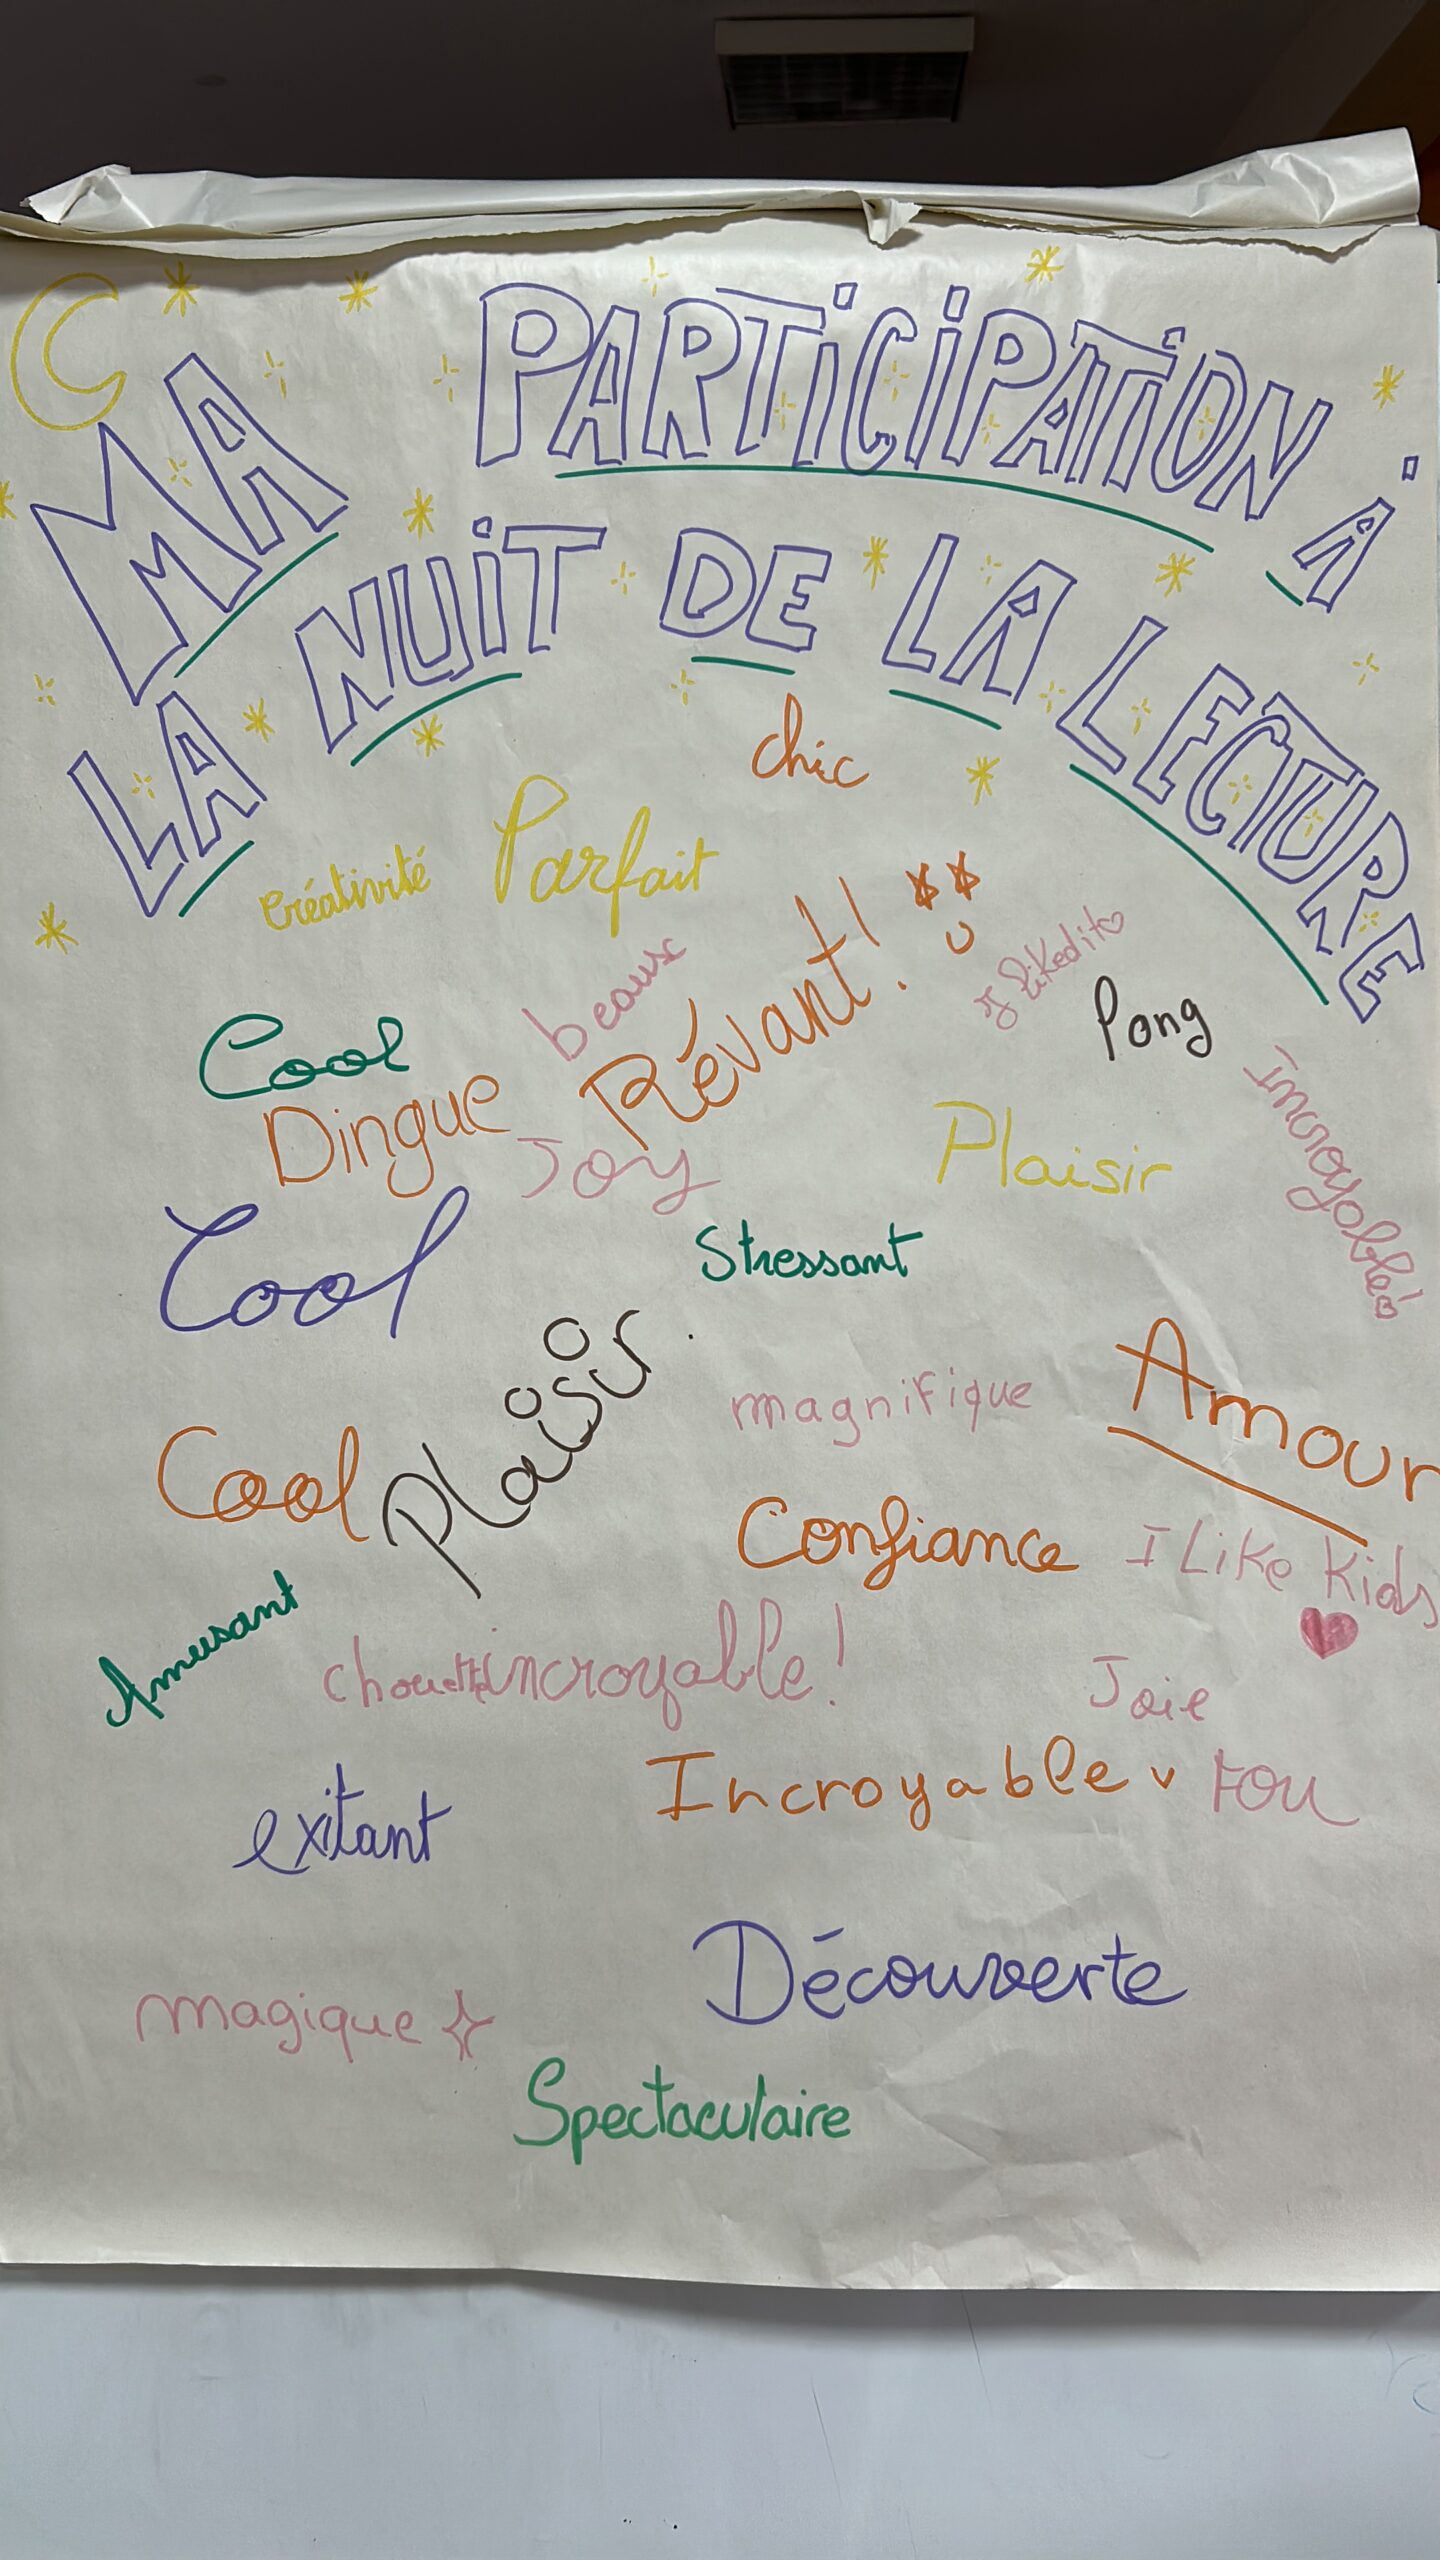 MA PARTICIPATION À
LA NUIT DE LA LECTURE
chic
Parfait
créativité
Révant!
beaux
I likedit
Pong
Cool
Dingue
Joy
Plaisir
Incroyable!
Cool
Stressant
Plaisir
magnifique
Amour
Cool
Confiance
I Like Kids
Amusant
chouette
incroyable!
Joie
Incroyable
Fou
exitant
Découverte
magique
Spectaculaire